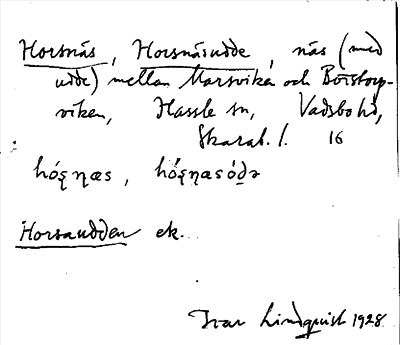 Horsnäs, Horsnäsudde, näs (med
udde) mellan Marsviken och Börstorp-
viken, Hassle sn, Vadsbo hd,
Skarab. l. 16
Horsaudden ek.
Ivar Lindquist 1928.